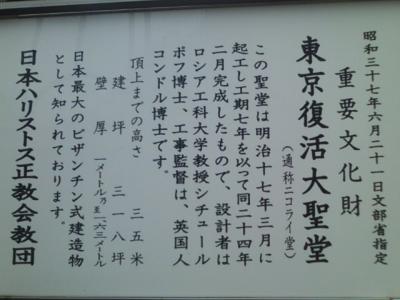 昭和三十七年六月二十一日文部省指定
重要文化財
東京復活大聖堂
（通称ニコライ堂）
この聖堂は明治十七年三月に
起工し工期七年を以って同二十四年
二月完成したもので、設計者は
ロシア工科大学教授シチュール
ポフ博士、工事監督は、英国人
コンドル博士です。
頂上までの高さ 三五米
建坪 三一八坪
壁厚 一メートル乃至一、六三メートル
日本最大のビザンチン式建造物
として知られております。
日本ハリストス正教会教団